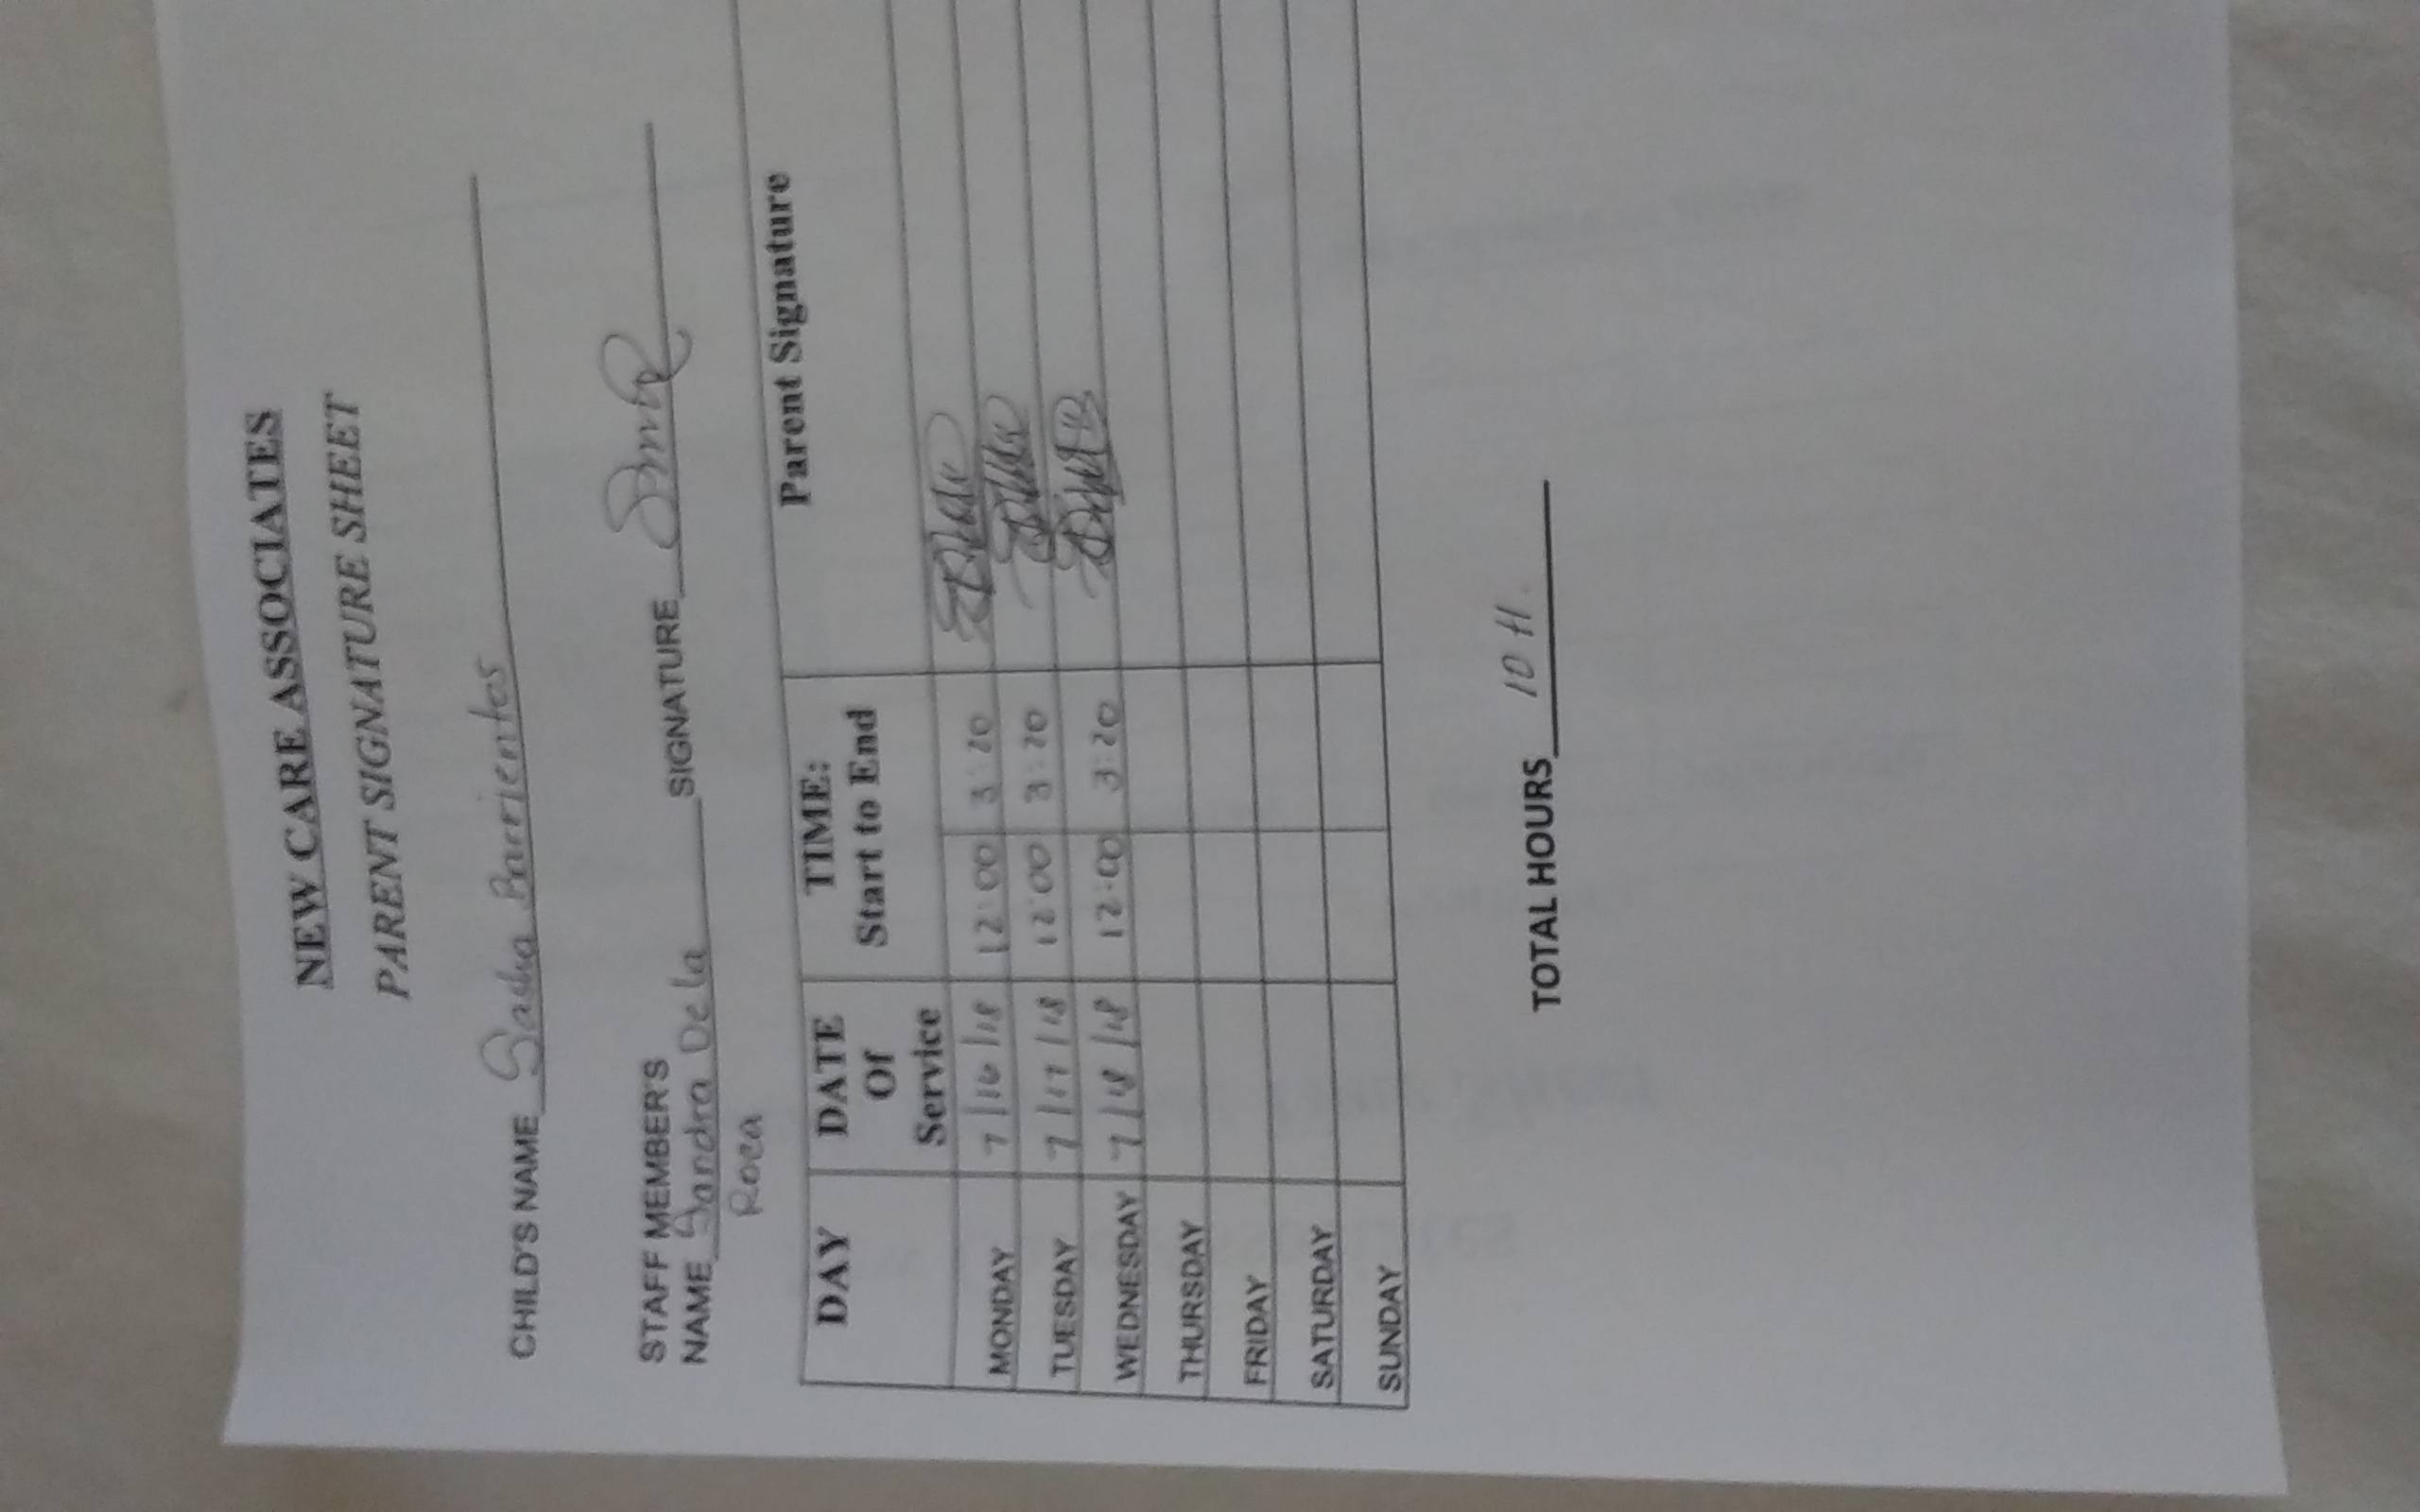 NEW CARE ASSOCIATES
PARENT SIGNATURE SHEET
CHILD'S NAME Sasha Barrientos
STAFF MEMBER'S
NAME Sandra De la SIGNATURE
Roca
DAY DATE Of Service TIME: Start to End Parent Signature
MONDAY 7/16/18 12:00 3:20
TUESDAY 7/17/18 12:00 3:20
WEDNESDAY 7/18/18 12:00 3:20
THURSDAY
FRIDAY
SATURDAY
SUNDAY
TOTAL HOURS 10 H.